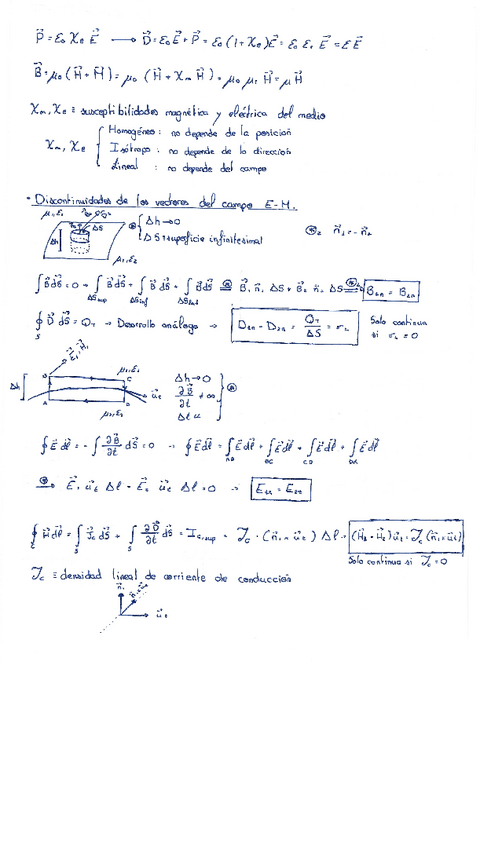 P⃗ = ε₀ χₑ E⃗ → D⃗ = ε₀ E⃗ + P⃗ = ε₀ (1 + χₑ) E⃗ = ε₀ εᵣ E⃗ = ε E⃗
B⃗ = μ₀ (H⃗ + M⃗) = μ₀ (H⃗ + χₘ H⃗) = μ₀ μᵣ H⃗ = μ H⃗
χₘ, χₑ ≡ susceptibilidades magnética y eléctrica del medio
Homogéneo : no depende de la posición
χₘ, χₑ { Isótropo : no depende de la dirección
Lineal : no depende del campo
· Discontinuidades de los vectores del campo E-M.
μ₁, ε₁
Δh ΔS
Δh → 0
ΔS ≡ superficie infinitesimal
μ₂, ε₂
∫ B⃗ dS⃗ = 0 = ∫ B⃗ dS⃗ + ∫ B⃗ dS⃗ + ∫ B⃗ dS⃗ = B⃗₁ n⃗₁ ΔS + B⃗₂ n⃗₂ ΔS B₁ₙ = B₂ₙ
∮ D⃗ dS⃗ = Q_T → Desarrollo análogo → D₁ₙ - D₂ₙ = Q_T / ΔS = σ Solo continua
si σ = 0
Δh B C μ₁, ε₁
A D u⃗ₜ
μ₂, ε₂
Δh → 0
∂B⃗/∂t ≠ ∞
∮ E⃗ dl⃗ = - ∫ ∂B⃗/∂t dS⃗ = 0 → ∮ E⃗ dl⃗ = ∫ E⃗ dl⃗ + ∫ E⃗ dl⃗ + ∫ E⃗ dl⃗ + ∫ E⃗ dl⃗
E⃗₁ u⃗ₜ Δl - E⃗₂ u⃗ₜ Δl = 0 → E₁ₜ = E₂ₜ
∮ H⃗ dl⃗ = ∫ J⃗c dS⃗ + ∫ ∂D⃗/∂t dS⃗ = I c,sup = J⃗c · (n⃗₁ ∧ u⃗ₜ) Δl → (H⃗₁ - H⃗₂) u⃗ₜ = J⃗c (n⃗₁ ∧ u⃗ₜ)
Solo continua si J⃗c = 0
J⃗c ≡ densidad lineal de corriente de conducción
u⃗ₜ